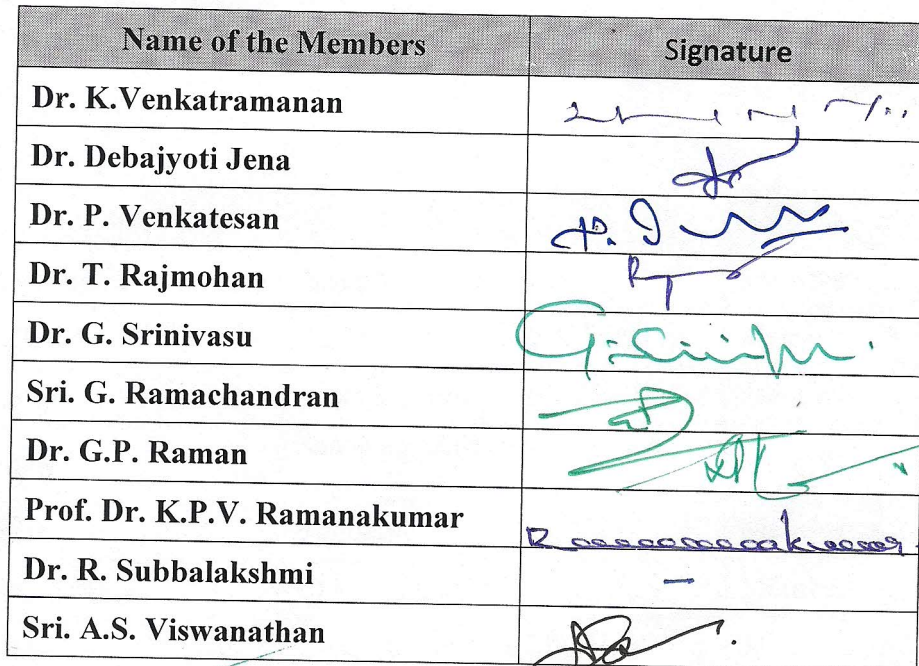 Name of the Members Signature
Dr. K.Venkatramanan
Dr. Debajyoti Jena
Dr. P. Venkatesan
Dr. T. Rajmohan
Dr. G. Srinivasu
Sri. G. Ramachandran
Dr. G.P. Raman
Prof. Dr. K.P.V. Ramanakumar
Dr. R. Subbalakshmi –
Sri. A.S. Viswanathan